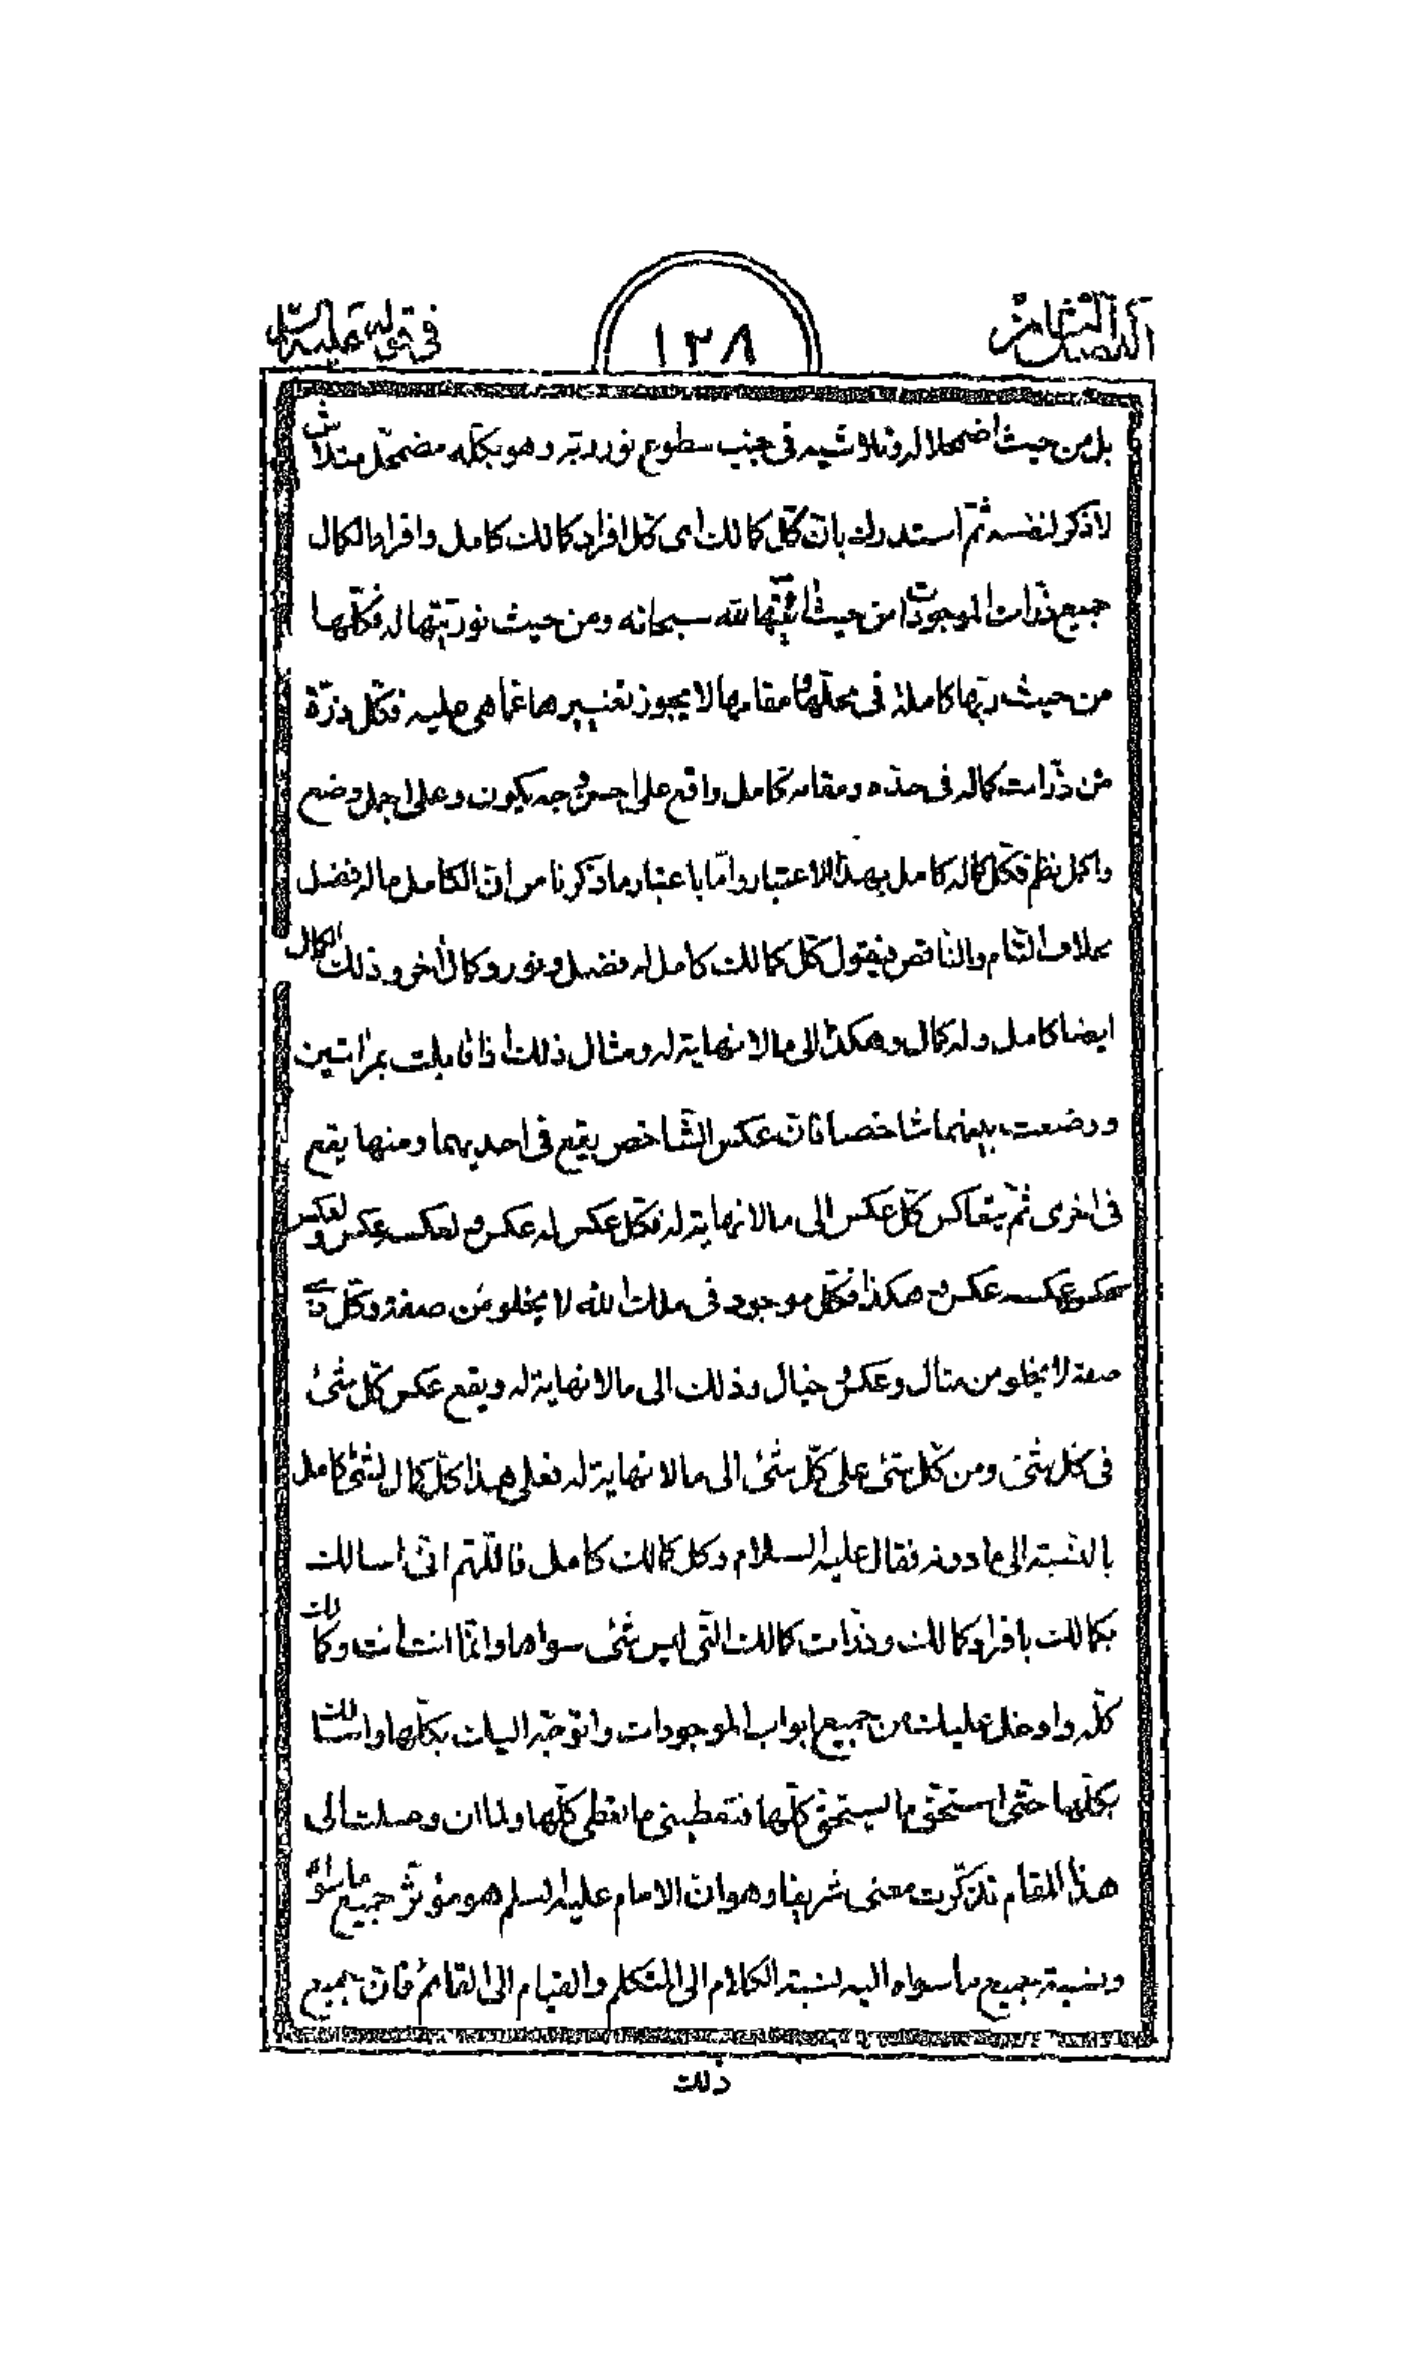 الفصل الثامن
١٢٨
فى قوله عليه السّلام
بل من حيث اضمحلاله وتلاشيه فى جنب سطوع نور ربّه وهو بكلّه مضمحل متلاش
لا ذكر لنفسه ثمّ استدرك بانّ كلّ كمالك اى كلّ افراد كمالك كامل وافراد الكمال
جميع ذرّات الموجودات من حيث انّها لله سبحانه ومن حيث نوريّتها له فكلّها
من حيث ربّها كاملة فى محلّها ومقامها لا يجوز تغييرها عمّا هى عليه فكلّ ذرّة
من ذرّات كماله فى حدّه ومقامه كامل واقع على احسن وجه يكون وعلى اجمل وضع
واكمل نظم فكلّ كماله كامل بهذا الاعتبار وامّا باعتبار ما ذكرنا من انّ الكامل ما له فضل
بخلاف التّام والنّاقص فيقول كلّ كمالك كامل له فضل ونور وكمال اخر وذلك الكمال
ايضا كامل وله كمال وهكذا الى ما لا نهاية له ومثال ذلك اذا قابلت بمراتين
ووضعت بينهما شاخصا فانّ عكس الشّاخص يقع فى احديهما ومنها يقع
فى اخرى ثمّ يتعاكس كلّ عكس الى ما لا نهاية له فكلّ عكس له عكس ولعكسه عكس ولعكس
عكسه عكس وهكذا فكلّ موجود فى ملك الله لا يخلو من صفة وكلّ ذى
صفة لا يخلو من مثال وعكس وخيال وذلك الى ما لا نهاية له ويقع عكس كلّ شئ
فى كلّ شئ ومن كلّ شئ على كلّ شئ الى ما لا نهاية له فعلى هذا كلّ كمال لشئ كامل
بالنّسبة الى ما دونه فقال عليه السلام وكل كمالك كامل فاللّهم انّى اسالك
بكمالك بافراد كمالك وذرّات كمالك الّتى ليس شئ سواها وانّما انت انت وكمالك
كلّه وادخل عليك من جميع ابواب الموجودات واتوجّه اليك بكلّها واسالك
بكلّها حتّى استحقّ ما يستحقّ كلّها فتعطينى ما تعطى كلّها ولما ان وصلت الى
هذا المقام تذكّرت معنى شريفا وهو انّ الامام عليه السلم هو مؤثّر جميع ما سواه
ونسبة جميع ما سواه اليه نسبة الكلام الى المتكلم والقيام الى القائم فانّ جميع
ذلك